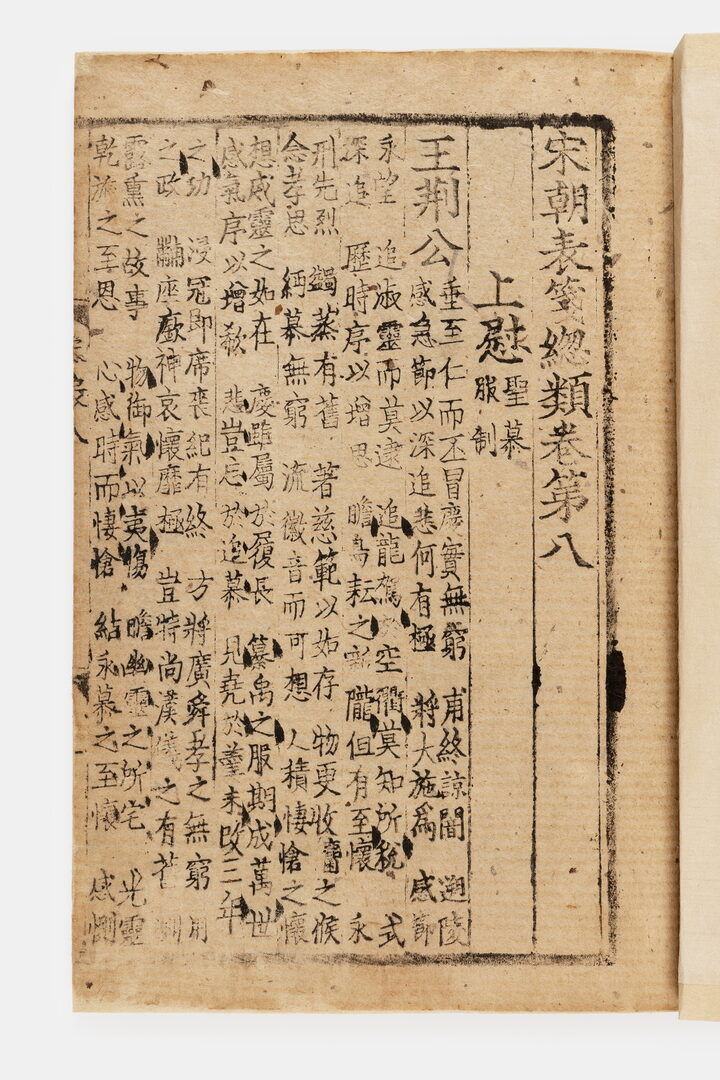 宋朝表箋緫類卷第八
上慰 聖慕
服制
王荆公
垂至仁而丕冒慶實無窮 甫終諒闇 遡陵
感急節以深追悲何有極 將大施爲 感節
永望 追淑靈而莫逮 追龍駕 空衢莫知所稅 式
深追 歷時序以增思 瞻鳥耘之新隴但有至懷 永
刑先烈 蠲蒸有舊 著慈範以如存 物更收之候
念孝思 緬慕無窮 流徽音而可想 人積悽愴之懷
想威靈之如在 慶雖屬於履長 纂禹之服期成萬世
感氣序以增欷 悲豈忘於追慕 見堯於墻未改三年
之功 浸冠即席喪紀有終 方將廣舜孝之無窮 用
之政 黼座 神哀懷靡極 豈特尚漢儀之有
露熏之故事 物御氣以夷傷 瞻幽靈之所宅 光靈
乾施之至恩 心感時而悽愴 結永慕之至懷 感惻